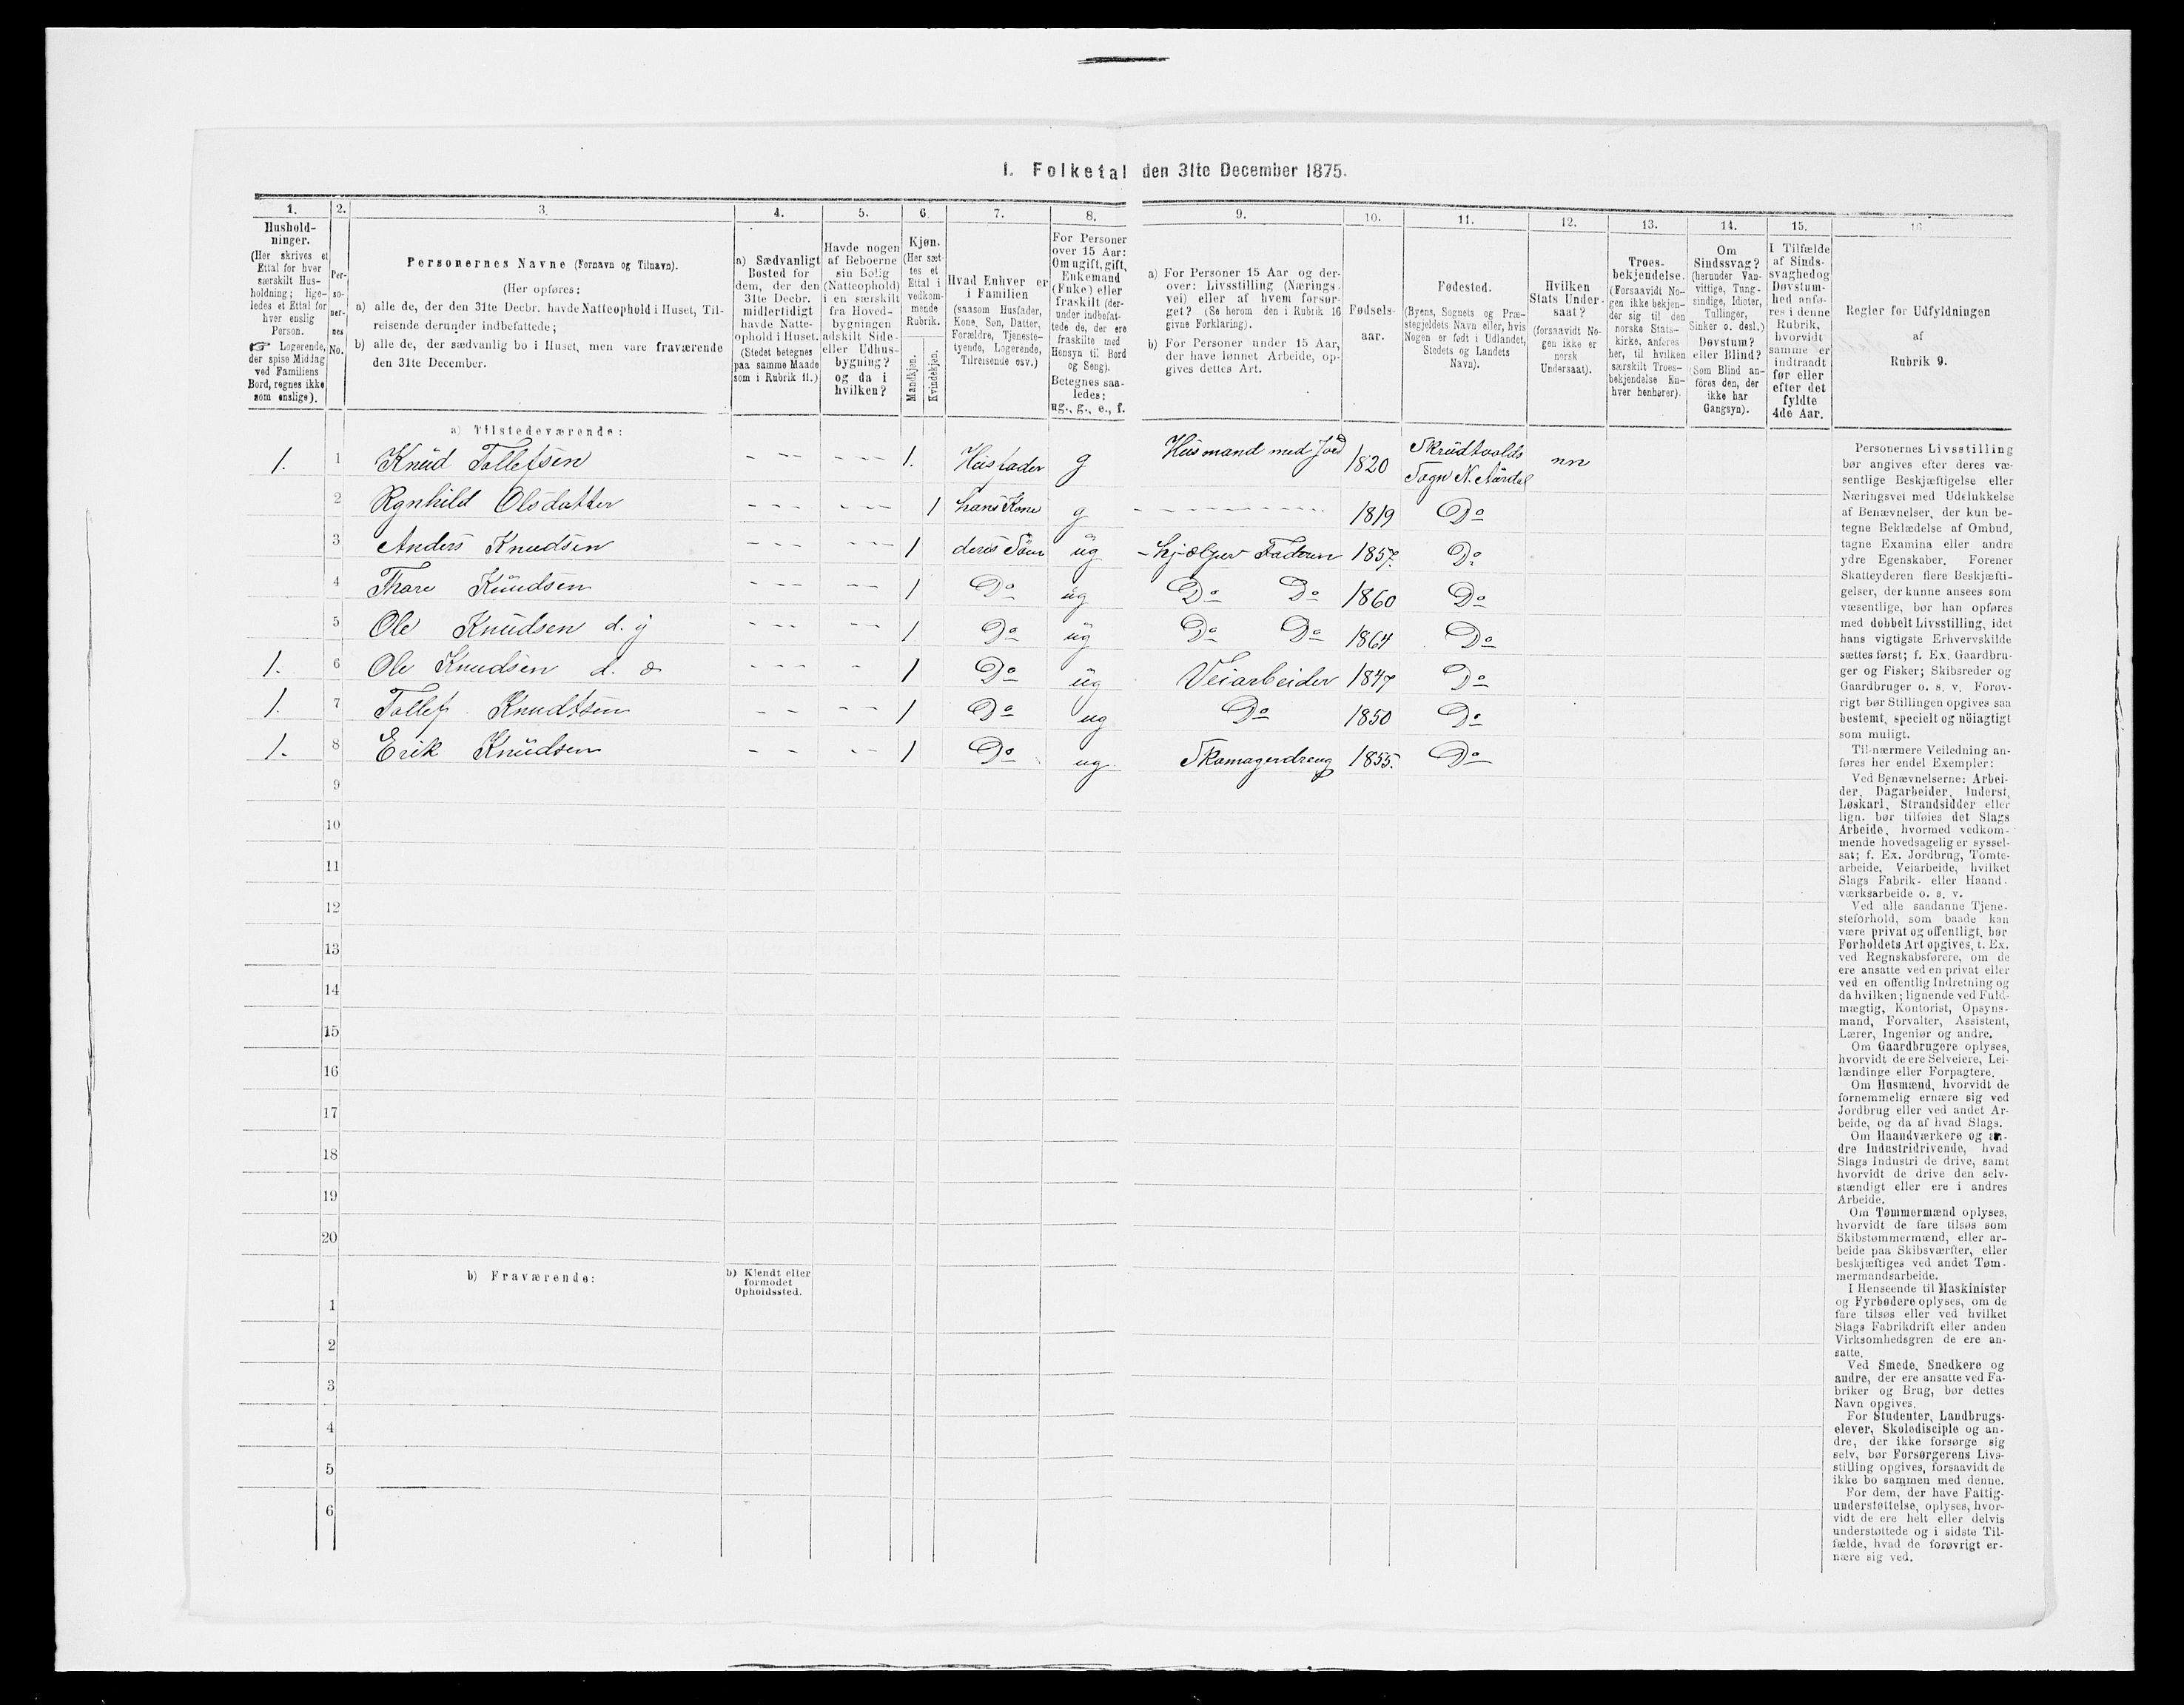 I. Folketal den 31te December 1875.
1. 2. 3. 4. 5. 6. 7. 8. 9. 10. 11. 12. 13. 14. 15. 16
Hushold-
ninger.
(Her skrives et
Ettal for hver
særskilt Hus-
holdning; lige-
ledes et Ettal for
hver enslig
Person.
☞ Logerende,
der spise Middag
ved Familiens
Bord, regnes ikke
som enslige).
Per-
so-
ner-
nes
No.
Personernes Navne (Fornavn og Tilnavn).
(Her opføres:
a) alle de, der den 31te Decbr. havde Natteophold i Huset, Til-
reisende derunder indbefattede;
b) alle de, der sædvanlig bo i Huset, men vare fraværende
den 31te December.
a) Sædvanligt
Bosted for
dem, der den
31te Decbr.
midlertidigt
havde Natte-
ophold i Huset.
(Stedet betegnes
paa samme Maade
som i Rubrik 11.)
Havde nogen
af Beboerne
sin Bolig
(Natteophold)
i en særskilt
fra Hoved-
bygningen
adskilt Side-
eller Udhus-
bygning?
og da i
hvilken?
Kjøn.
(Her sæt-
tes et
Ettal i
vedkom-
mende
Rubrik.
Mandkjøn.
Kvindekjøn.
Hvad Enhver er
i Familien
(saasom Husfader,
Kone, Søn, Datter,
Forældre, Tjeneste-
tyende, Logerende,
Tilreisende osv.)
For Personer
over 15 Aar:
Om ugift, gift,
Enkemand
(Enke) eller
fraskilt (der-
under indbefat-
tede de, der ere
fraskilte med
Hensyn til Bord
og Seng).
Betegnes saa-
ledes:
ug., g., e., f.
a) For Personer 15 Aar og der-
over: Livsstilling (Nærings-
vei) eller af hvem forsør-
get? (Se herom den i Rubrik 16
givne Forklaring).
b) For Personer under 15 Aar,
der have lønnet Arbeide, op-
gives dettes Art.
Fødsels-
aar.
Fødested.
(Byens, Sognets og Præ-
stegjeldets Navn eller, hvis
Nogen er født i Udlandet,
Stedets og Landets
Navn).
Hvilken
Stats Under-
saat?
(forsaavidt No-
gen ikke er
norsk
Undersaat).
Troes-
bekjendelse.
(Forsaavidt No-
gen ikke bekjen-
der sig til den
norske Stats-
kirke, anføres
her, til hvilken
særskilt Troes-
bekjendelse En-
hver henhører).
Om
Sindssvag?
(herunder Van-
vittige, Tung-
sindige, Idioter,
Tullinger,
Sinker o. desl.)
Døvstum?
eller Blind?
(Som Blind an-
føres den, der
ikke har
Gangsyn).
I Tilfælde
af Sinds-
svaghed og
Døvstum-
hed anfø-
res i denne
Rubrik,
hvorvidt
samme er
indtraadt
før eller
efter det
fyldte
4de Aar.
Regler for Udfyldningen
af
Rubrik 9.
a) Tilstedeværende:
1. 1 Knud Tollefsen - - - - - - 1. Husfader g Husmand med Jord 1820 Skrudtvolds
Sogn N. Aurdal
2 Rgnhild Olsdatter - - - - - - 1 hans Kone g - - - - - - 1819 Do
3 Anders Knudsen - - - - - - 1 deres Søn ug - hjælper Faderen 1857. Do
4 Thore Knudsen - - - - - 1 Do ug Do Do 1860 Do
5 Ole Knudsen d. y - - - - - 1 Do ug Do Do 1864 Do
1. 6 Ole Knudsen d. æ - - - - 1 Do ug Veiarbeider 1847 Do
1. 7 Tollef Knudtsen - - - - 1 Do ug Do 1850 Do
1. 8 Erik Knudsen - - - - 1 Do ug. Skomagerdreng 1855. Do
9
10
11
12
13
14
15
16
17
18
19
20
b) Fraværende:
b) Kjendt eller
formodet
Opholdssted.
1
2
3
4
5
6
Personernes Livsstilling
bør angives efter deres væ-
sentlige Beskjæftigelse eller
Næringsvei med Udelukkelse
af Benævnelser, der kun be-
tegne Beklædelse af Ombud,
tagne Examina eller andre
ydre Egenskaber. Forener
Skatteyderen flere Beskjæfti-
gelser, der kunne ansees som
væsentlige, bør han opføres
med dobbelt Livsstilling, idet
hans vigtigste Erhvervskilde
sættes først; f. Ex. Gaardbru-
ger og Fisker; Skibsreder og
Gaardbruger o. s. v. Forøv-
rigt bør Stillingen opgives saa
bestemt, specielt og nöiagtigt
som muligt.
Til nærmere Veiledning an-
føres her endel Exempler:
Ved Benævnelserne: Arbei-
der, Dagarbeider, Inderst,
Løskarl, Strandsidder eller
lign. bør tilføies det Slags
Arbeide, hvormed vedkom-
mende hovedsagelig er syssel-
sat; f. Ex. Jordbrug, Tomte-
arbeide, Veiarbeide, hvilket
Slags Fabrik- eller Haand-
værksarbeide o. s. v.
Ved alle saadanne Tjene-
steforhold, som baade kan
være privat og offentligt, bør
Forholdets Art opgives, t. Ex.
ved Regnskabsførere, om de
ere ansatte ved en privat eller
ved en offentlig Indretning og
da hvilken; lignende ved Fuld-
mægtig, Kontorist, Opsyns-
mand, Forvalter, Assistent,
Lærer, Ingeniør og andre.
Om Gaardbrugere oplyses,
hvorvidt de ere Selveiere, Lei-
lændinge eller Forpagtere.
Om Husmænd, hvorvidt de
fornemmelig ernære sig ved
Jordbrug eller ved andet Ar-
beide, og da af hvad Slags.
Om Haandværkere og an-
dre Industridrivende, hvad
Slags Industri de drive, samt
hvorvidt de drive den selv-
stændigt eller ere i andres
Arbeide.
Om Tømmermænd oplyses,
hvorvidt de fare tilsøs som
Skibstømmermænd, eller ar-
beide paa Skibsværfter, eller
beskjæftiges ved andet Tøm-
mermandsarbeide.
I Henseende til Maskinister
og Fyrbødere oplyses, om de
fare tilsøs eller ved hvilket
Slags Fabrikdrift eller anden
Virksomhedsgren de ere an-
satte.
Ved Smede, Snedkere og
andre, der ere ansatte ved Fa-
briker og Brug, bør dettes
Navn opgives.
For Studenter, Landbrugs-
elever, Skoledisciple og an-
dre, der ikke forsørge sig
selv, bør Forsørgerens Livs-
stilling opgives, forsaavidt de
ikke bo sammen med denne.
For dem, der have Fattig-
understøttelse, oplyses, hvor-
vidt de ere helt eller delvis
understøttede og i sidste Til-
fælde, hvad de forøvrigt er-
nære sig ved.